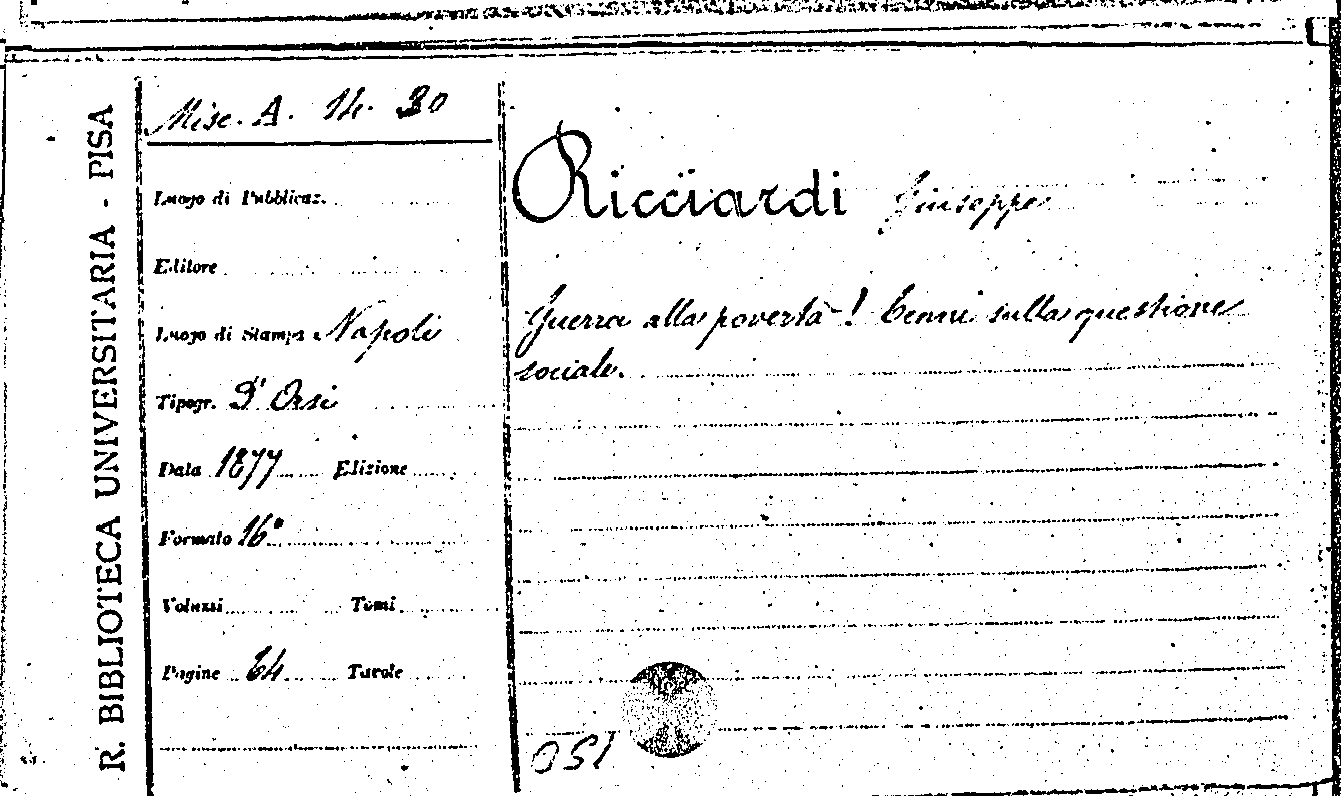 R. BIBLIOTECA UNIVERSITARIA - PISA
Misc. A. 14. 30
Luogo di Pubblicaz.
Editore
Luogo di Stampa Napoli
Tipogr. D'Orsi
Data 1877 Edizione
Formato 16°
Volumi Tomi
Pagine 64 Tavole
Ricciardi Giuseppe
Guerra alla povertà! Cenni sulla questione
sociale.
OSI